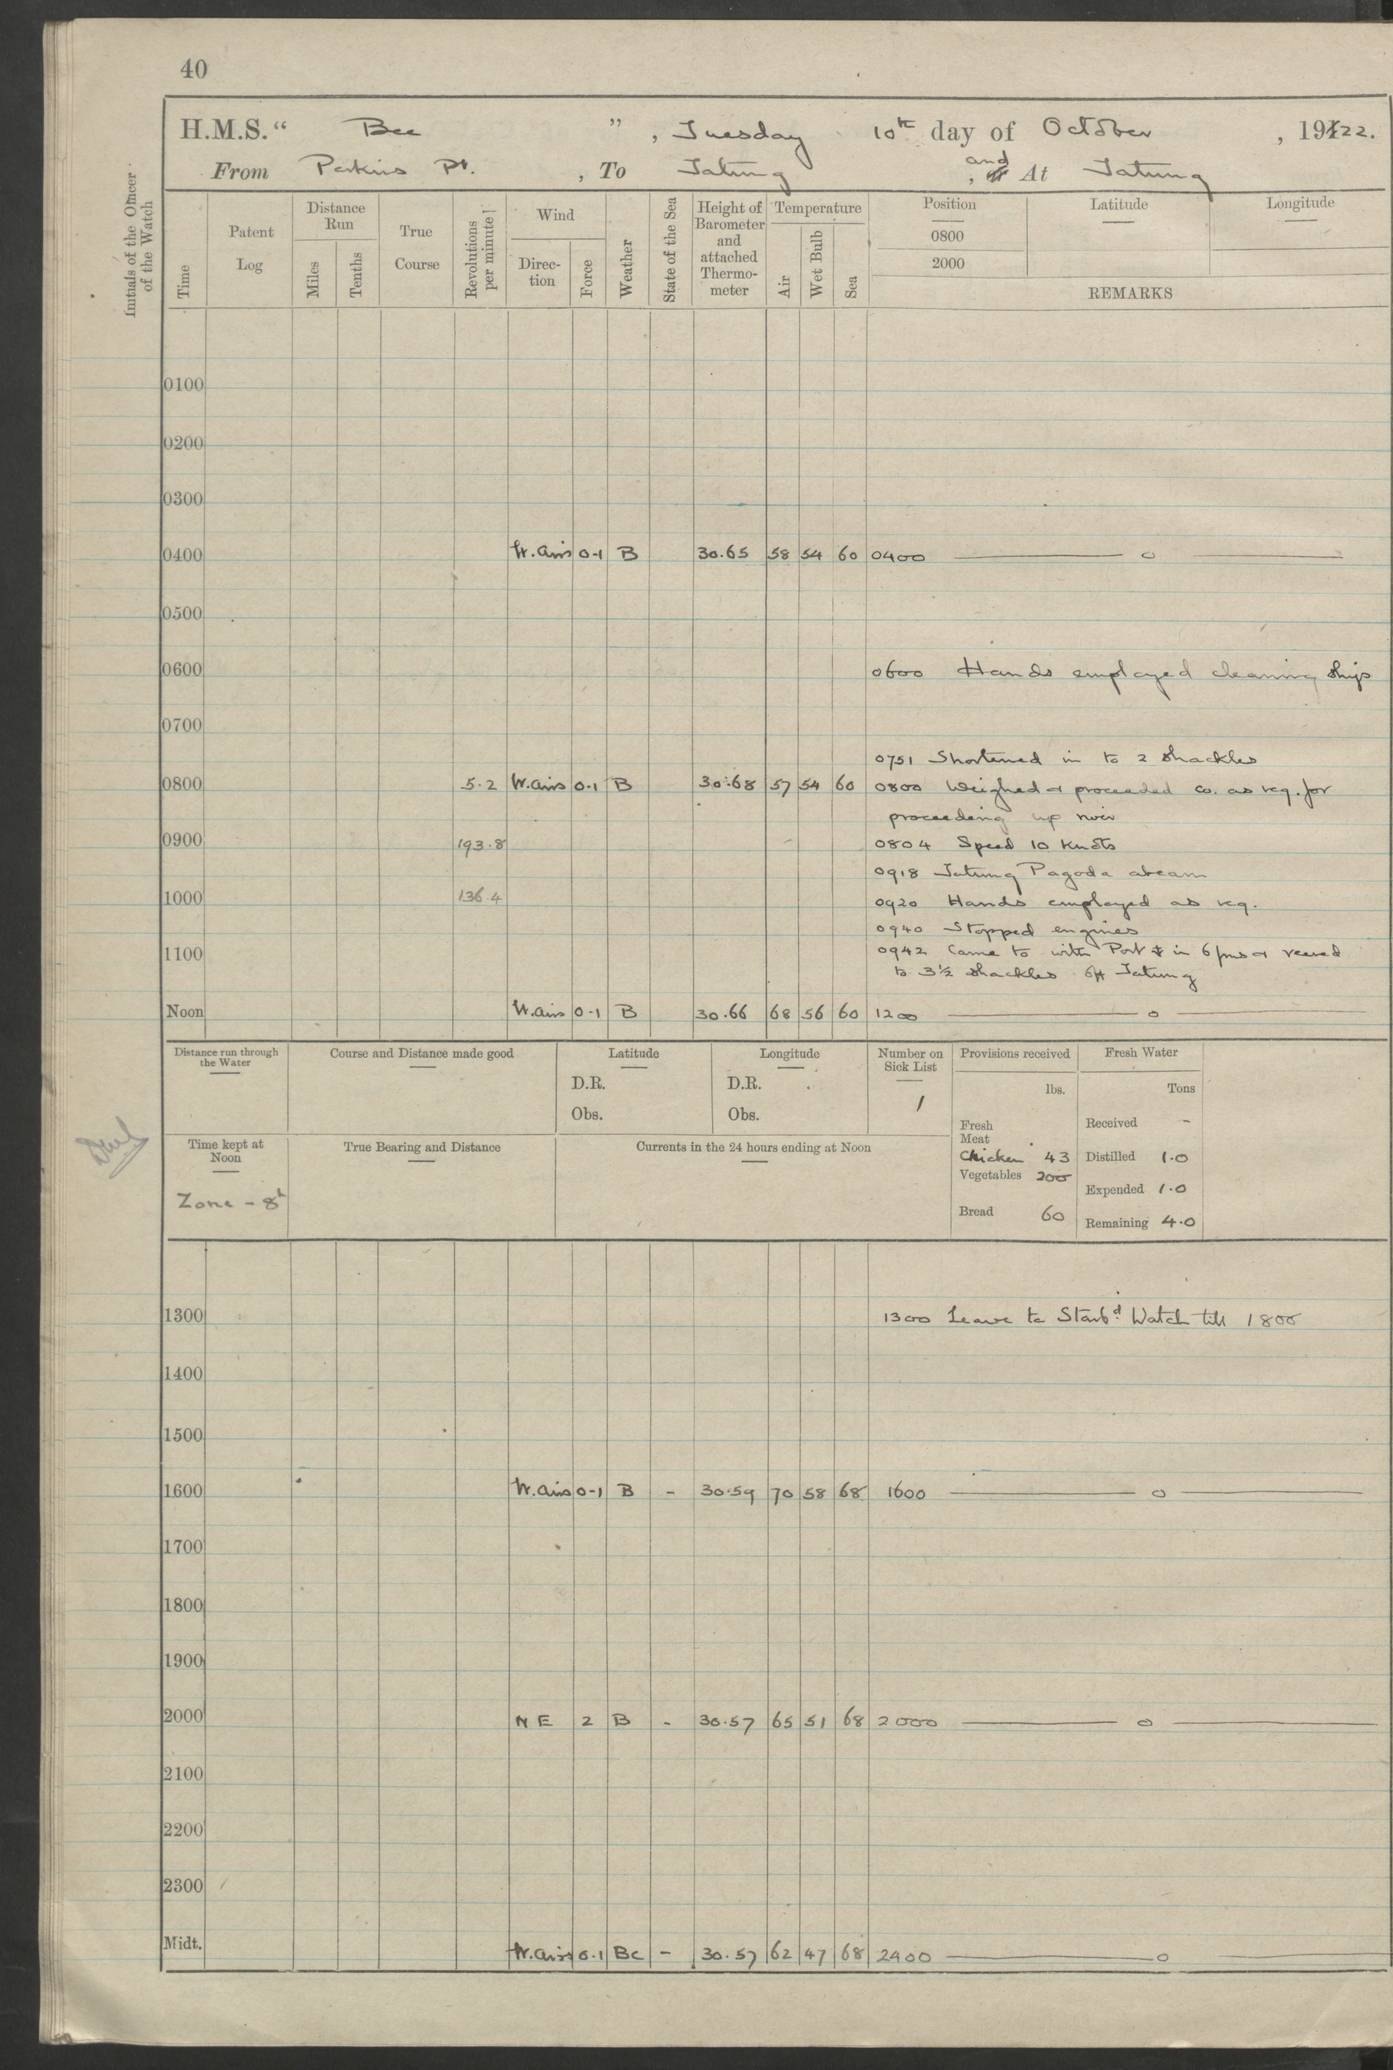 40
H.M.S. " Bee ", Tuesday 10th day of October, 1922.
From Perkins Pt., To Tatung, and At Tatung
Initials of the Officer of the Watch
Time
Patent Log
Distance Run
Miles
Tenths
True Course
Revolutions per minute
Wind
Direction
Force
Weather
State of the Sea
Height of Barometer and attached Thermometer
Temperature
Air
Wet Bulb
Sea
Position
0800
2000
Latitude
Longitude
REMARKS
0100
0200
0300
0400 W. airs 0-1 B 30.65 58 54 60 0400 — o —
0500
0600 0600 Hands employed cleaning ship
0700
0751 Shortened in to 2 shackles
0800 5.2 W. airs 0-1 B 30.68 57 54 60 0800 Weighed & proceeded co. as req. for
proceeding up river
0900 193.8 0804 Speed 10 Knots
0918 Tatung Pagoda abeam
1000 136.4 0920 Hands employed as req.
0940 Stopped engines
1100 0942 Came to with Port ⚓ in 6 fms & veered
to 3½ shackles off Tatung
Noon W. airs 0-1 B 30.66 68 56 60 1200 — o —
Distance run through the Water
Course and Distance made good
Latitude
D.R.
Obs.
Longitude
D.R.
Obs.
Number on Sick List
1
Provisions received
lbs.
Fresh Meat
Chicken 43
Vegetables 200
Bread 60
Fresh Water
Tons
Received -
Distilled 1.0
Expended 1.0
Remaining 4.0
Time kept at Noon
Zone - 8h
True Bearing and Distance
Currents in the 24 hours ending at Noon
1300 1300 Leave to Starbd Watch till 1800
1400
1500
1600 W. airs 0-1 B - 30.59 70 58 68 1600 — o —
1700
1800
1900
2000 N E 2 B - 30.57 65 51 68 2000 — o —
2100
2200
2300
Midt. W. airs 0-1 Bc - 30.57 62 47 68 2400 — o —